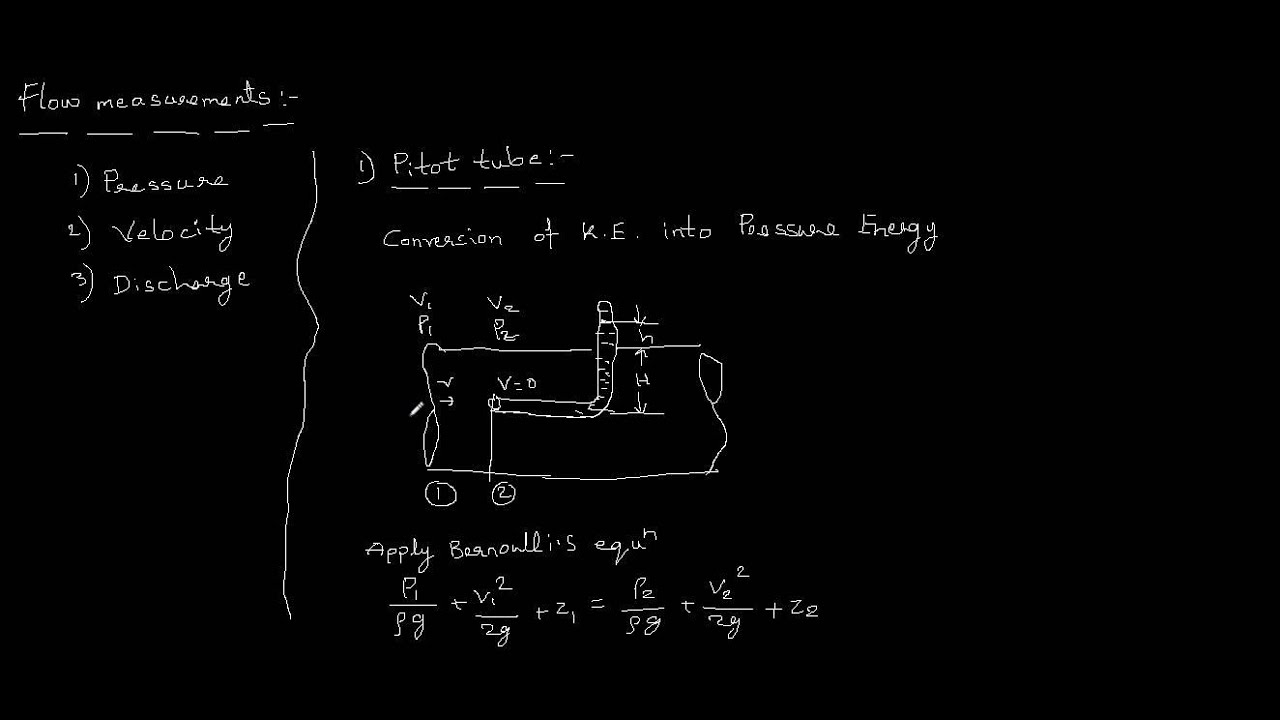 Flow measurements:-
1) Pressure
2) Velocity
3) Discharge
1) Pitot tube:-
Conversion of K.E. into Pressure Energy
V₁ V₂
P₁ P₂
h
v V=0 H
→
① ②
Apply Bernoulli's equⁿ
P₁/ρg + V₁²/2g + z₁ = P₂/ρg + V₂²/2g + z₂